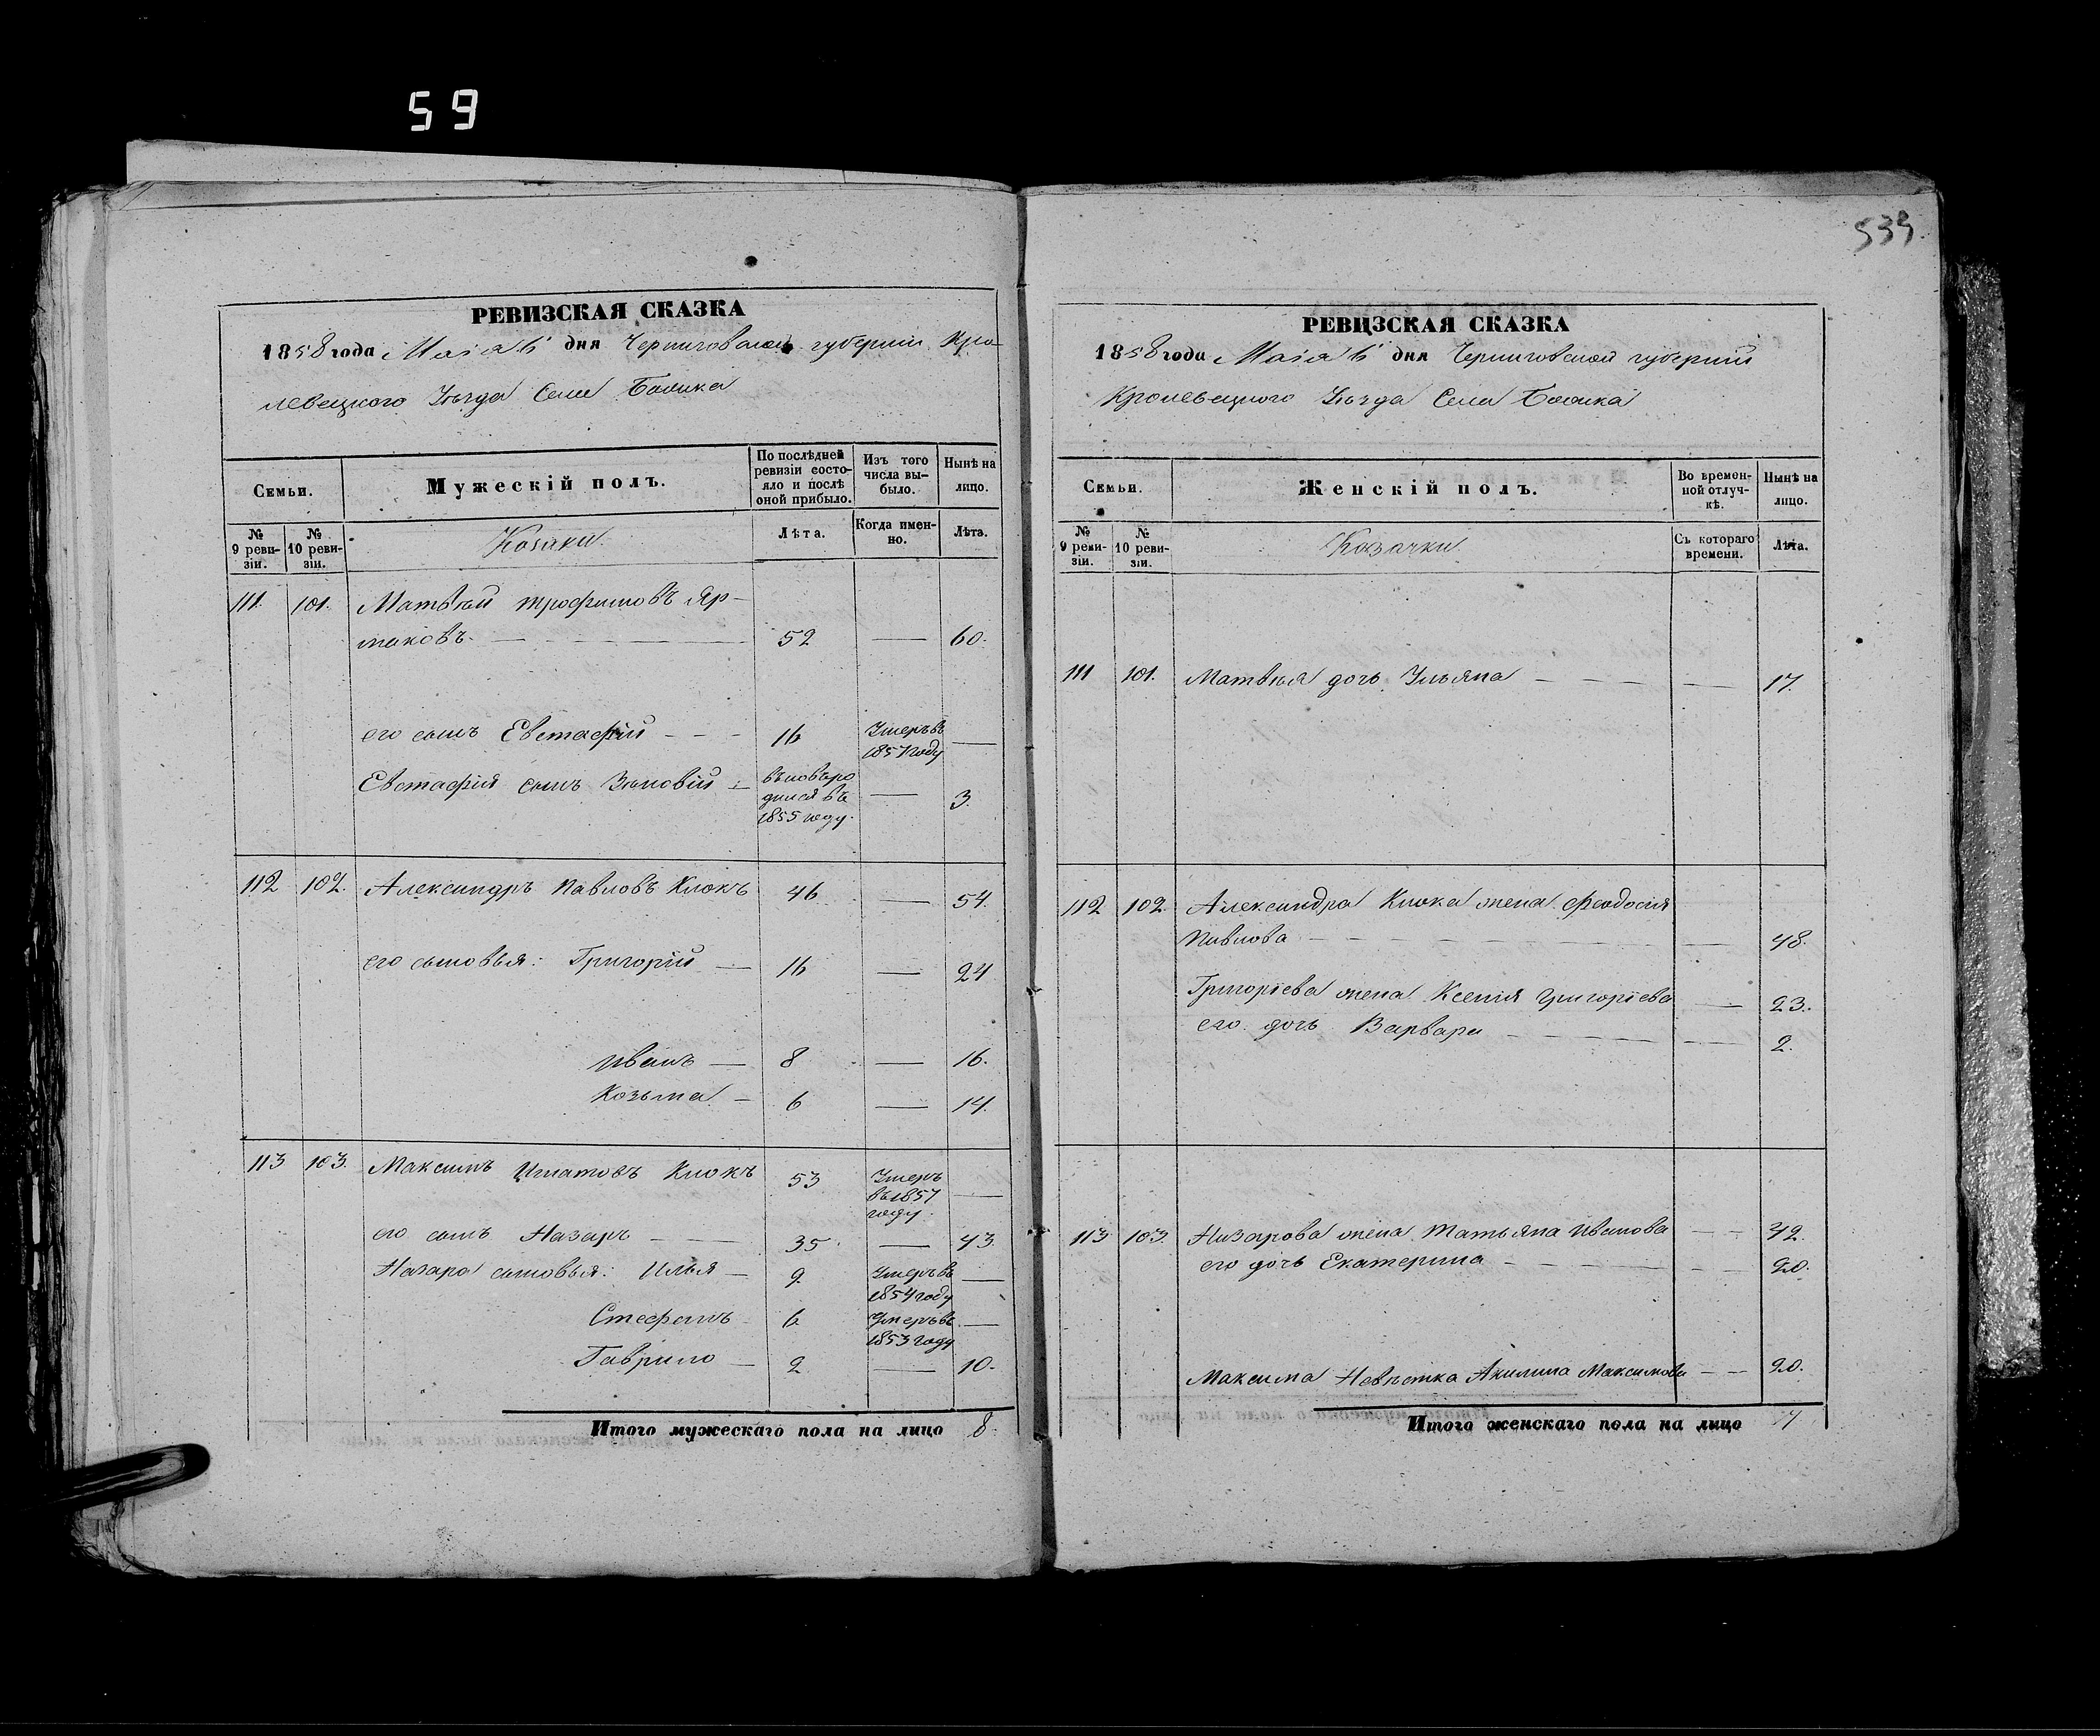 59
539.
РЕВИЗСКАЯ СКАЗКА
1858 года Маія 6 дня Черниговской губерніи Кро-
левецкого Уѣзда Села
Семьи.
Мужескій полъ.
По послѣдней ревизіи состо-
яло и послѣ оной прибыло.
Изъ того числа вы-
было.
Нынѣ на лицо.
№ 9 реви-
зіи.
№ 10 реви-
зіи.
Козаки.
Лѣта.
Когда имен-
но.
Лѣта.
111. 101. Матвѣй Трофимовъ Яр-
маковъ. — 52 — 60.
его сынъ Евстафій — 16 Умеръ въ
1857 году —
Евстафія сынъ Зѣновій — вѣноворо
дился въ — 3.
1855 году.
112 102. Александръ Павловъ Клокъ 46 — 54.
его сыновья: Григорій — 16 — 24
Иванъ — 8 — 16.
Козьма — 6 — 14.
113 103. Максимъ Игнатовъ Клокъ 53 Умеръ
въ 1857 —
году.
его сынъ Назаръ — 35 — 43.
Назара сыновья: Илья — 9 Умеръ въ —
1854 году
Стефанъ 6 Умеръ въ —
1853 году
Гаврило — 2 — 10.
Итого мужескаго пола на лицо 8.
РЕВИЗСКАЯ СКАЗКА
1858 года Маія 6 дня Черниговской губерніи
Кролевецкого Уѣзда Села
Семьи.
Женскій полъ.
Во времен-
ной отлуч-
кѣ.
Нынѣ на лицо.
№ 9 реви-
зіи.
№ 10 реви-
зіи.
Козачки.
Съ котораго времени.
Лѣта.
111 101. Матвѣя дочь Ульяна — — 17.
112 102. Александра Клока жена Феодосія
Павлова — — 48.
Григоріева жена Ксенія Григоріева — 23.
его дочь Варвара — — 2.
113 103. Назарова жена Татьяна Иванова — 42.
его дочь Екатерина — — 20.
Максима Невѣстка Акилина Максимова — 20.
Итого женскаго пола на лицо 7